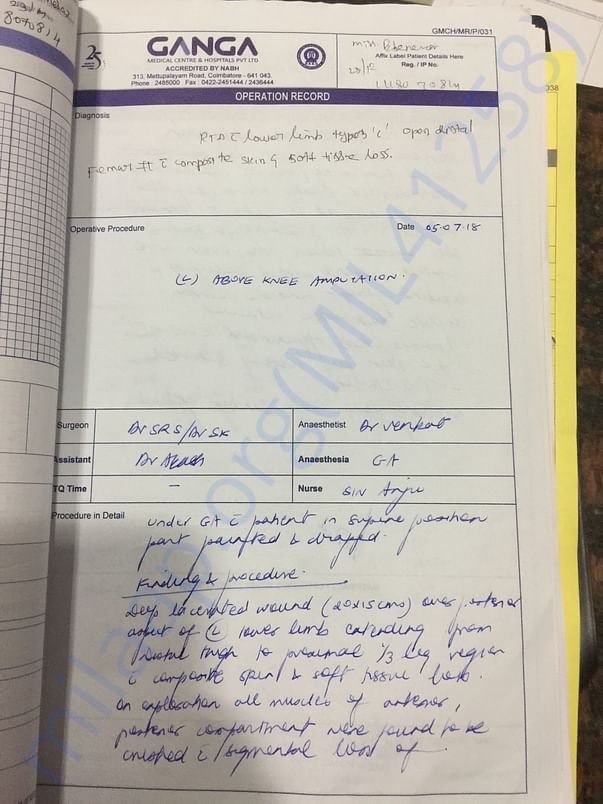 8070814
GMCH/MR/P/031
25
GANGA
MEDICAL CENTRE & HOSPITALS PVT LTD
ACCREDITED BY NABH
313, Mettupalayam Road, Coimbatore - 641 043.
Phone : 2485000 Fax : 0422-2451444 / 2436444
Affix Label Patient Details Here
Reg. / IP No.
OPERATION RECORD
Diagnosis
RTA c̄ lower limb type 'c' open distal
Femur # c̄ composite skin & soft tissue loss.
Operative Procedure
Date 05.07.18
(L) ABOVE KNEE AMPUTATION.
Surgeon Dr SRS/Dr SK
Anaesthetist Dr Venkat
Assistant Dr Akash
Anaesthesia GA
TQ Time –
Nurse SIN Anju
Procedure in Detail
Under GA c̄ patient in supine position
part painted & drapped.
Finding & procedure.
Deep lacerated wound (20x15cms) over
aspect of (L) lower limb extending from
Distal thigh to proximal 1/3 leg region
c̄ composite skin & soft tissue loss.
on exploration all muscles of anterior,
posterior compartment were found to be
crushed c̄ segmental loss of
milaap.org(MIL41258)
038